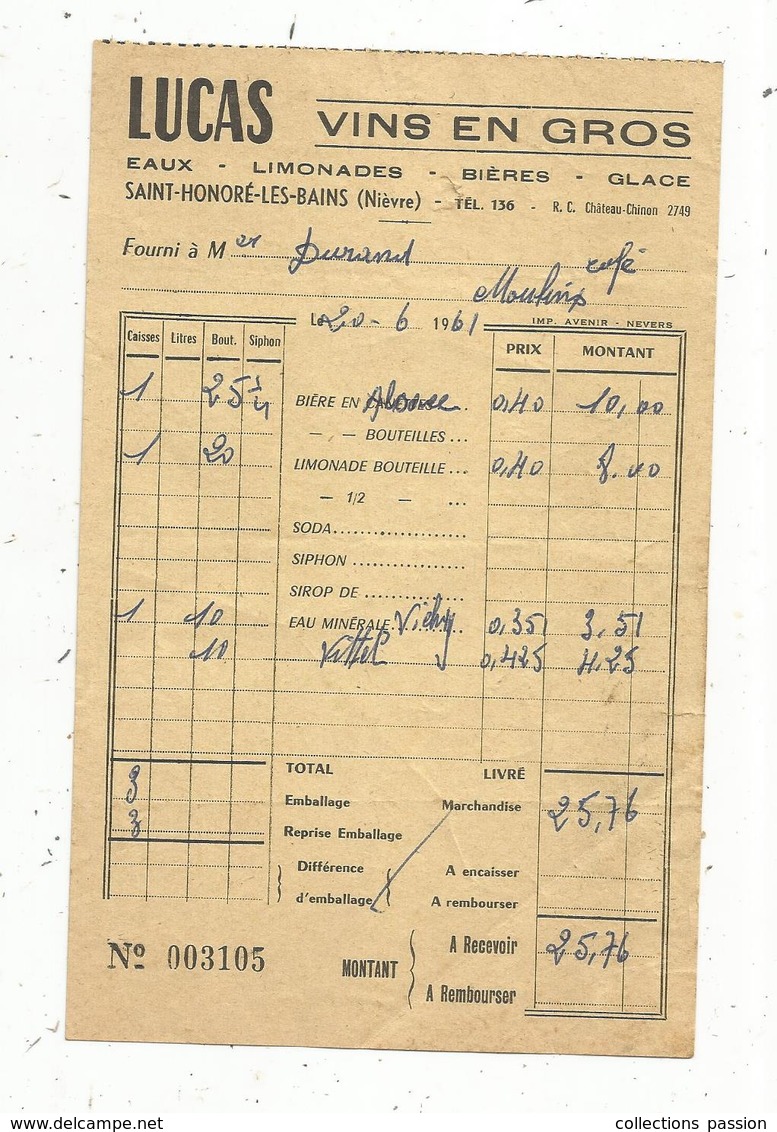 LUCAS VINS EN GROS
EAUX - LIMONADES - BIÈRES - GLACE
SAINT-HONORÉ-LES-BAINS (Nièvre) - TÉL. 136 - R. C. Château-Chinon 2749
Fourni à M Durand
café
Moulins
Le 20-6 1961 IMP. AVENIR - NEVERS
Caisses Litres Bout. Siphon PRIX MONTANT
1 25 BIÈRE EN CANETTES ... 0,40 10,00
— — BOUTEILLES ...
1 20 LIMONADE BOUTEILLE ... 0,40 8.00
— 1/2 — ...
SODA
SIPHON
SIROP DE
1 10 EAU MINÉRALE Vichy 0,351 3,51
10 Vittel 0,425 4,25
TOTAL LIVRÉ
3 Emballage Marchandise 25,76
3 Reprise Emballage
Différence A encaisser
d'emballage A rembourser
Nº 003105 MONTANT A Recevoir 25,76
A Rembourser
collections passion